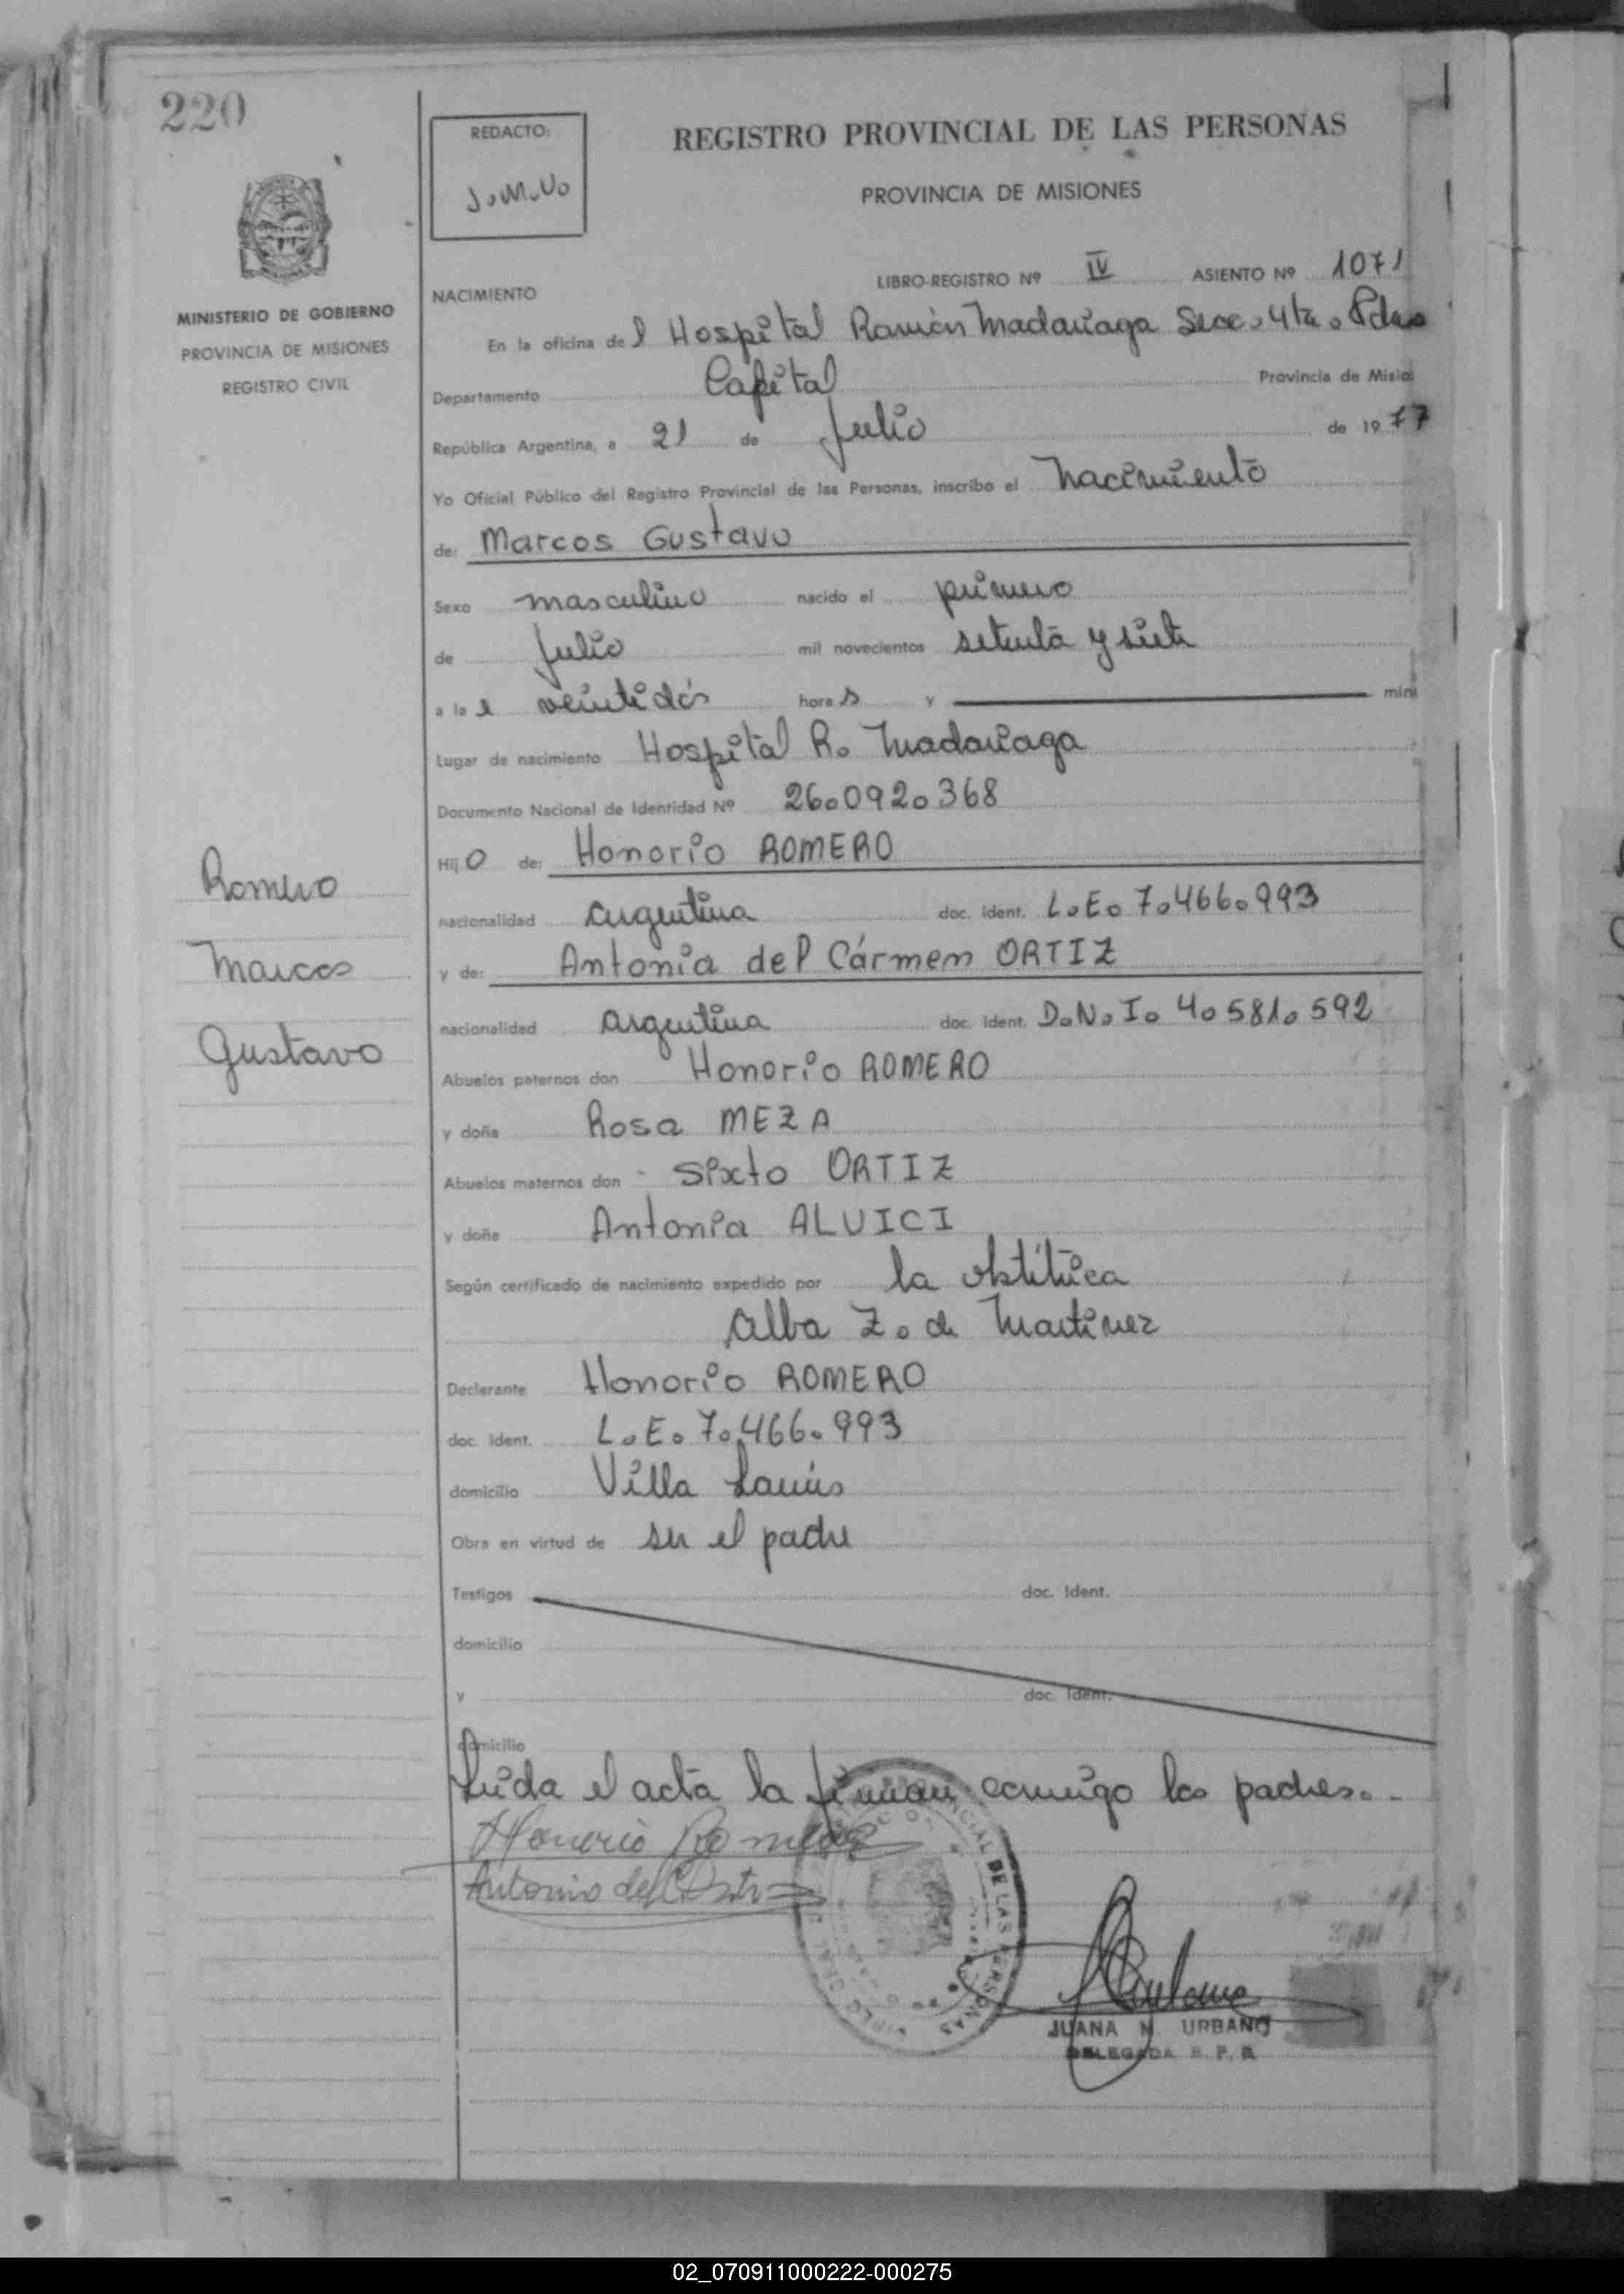 220
REDACTO:
J.M.U.
REGISTRO PROVINCIAL DE LAS PERSONAS
PROVINCIA DE MISIONES
MINISTERIO DE GOBIERNO
PROVINCIA DE MISIONES
REGISTRO CIVIL
LIBRO-REGISTRO Nº IV ASIENTO Nº 1071
NACIMIENTO
En la oficina del Hospital Ramón Madariaga Secc. 4ta. Pdas
Departamento Capital Provincia de Misio
República Argentina, a 21 de Julio de 1977
Yo Oficial Público del Registro Provincial de las Personas, inscribo el nacimiento
de: Marcos Gustavo
Sexo masculino nacido el primero
de Julio mil novecientos setenta y siete
a las veintidós horas y min
Lugar de nacimiento Hospital R. Madariaga
Documento Nacional de Identidad Nº 26.092.368
Hijo de: Honorio ROMERO
nacionalidad argentina doc. ident. L.E. 7.466.993
y de: Antonia del Cármen ORTIZ
nacionalidad argentina doc. ident. D.N.I. 4.581.592
Abuelos paternos don Honorio ROMERO
y doña Rosa MEZA
Abuelos maternos don Sixto ORTIZ
y doña Antonia ALUICI
Según certificado de nacimiento expedido por la obstétrica
Alba Z. de Martinez
Declarante Honorio ROMERO
doc. ident. L.E. 7.466.993
domicilio Villa Lanús
Obra en virtud de ser el padre
Testigos doc. ident.
domicilio
y doc. ident.
domicilio
Leída el acta la firman conmigo los padres.-
Honorio Romero
Antonia del C Ortiz
JUANA M. URBANO
DELEGADA R. P. P.
Romero
Marcos
Gustavo
02_070911000222-000275